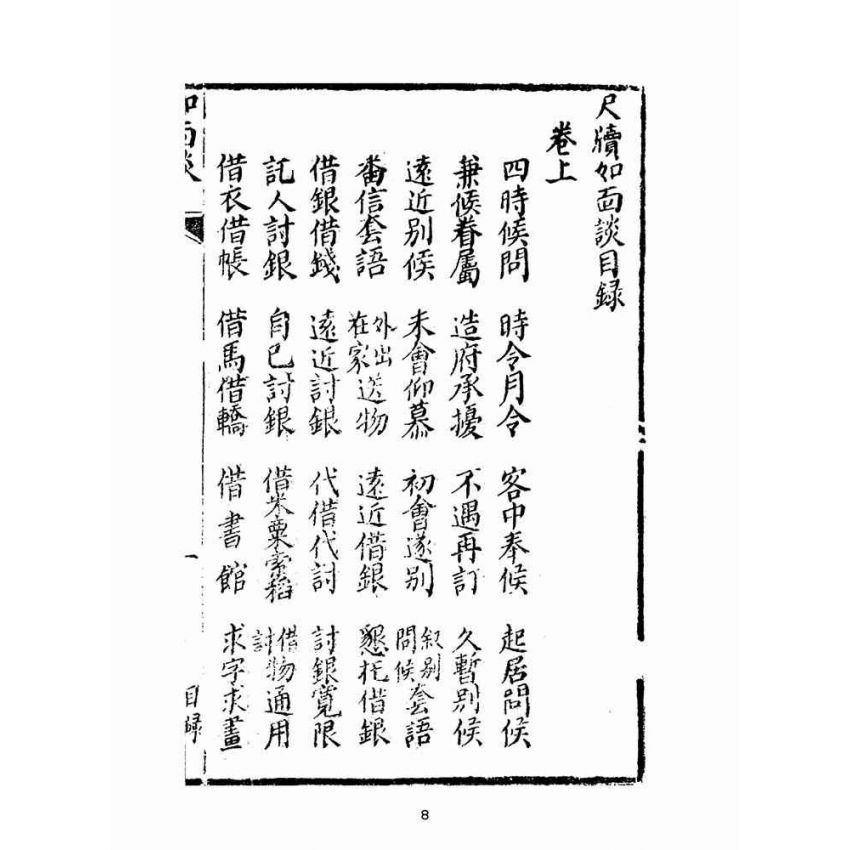 尺牘如面談目録
卷上
四時候問 時令月令 客中奉候 起居問候
兼候眷屬 造府承擾 不遇再訂 久暫別候
遠近別候 未會仰慕 初會遂別 叙別問候套語
畨信套語 外出在家送物 遠近借銀 懇托借銀
借銀借錢 遠近討銀 代借代討 討銀寬限
託人討銀 自己討銀 借米粟索稻 借物討物通用
借衣借帳 借馬借轎 借書館 求字求畫
如面談 一 目録
8